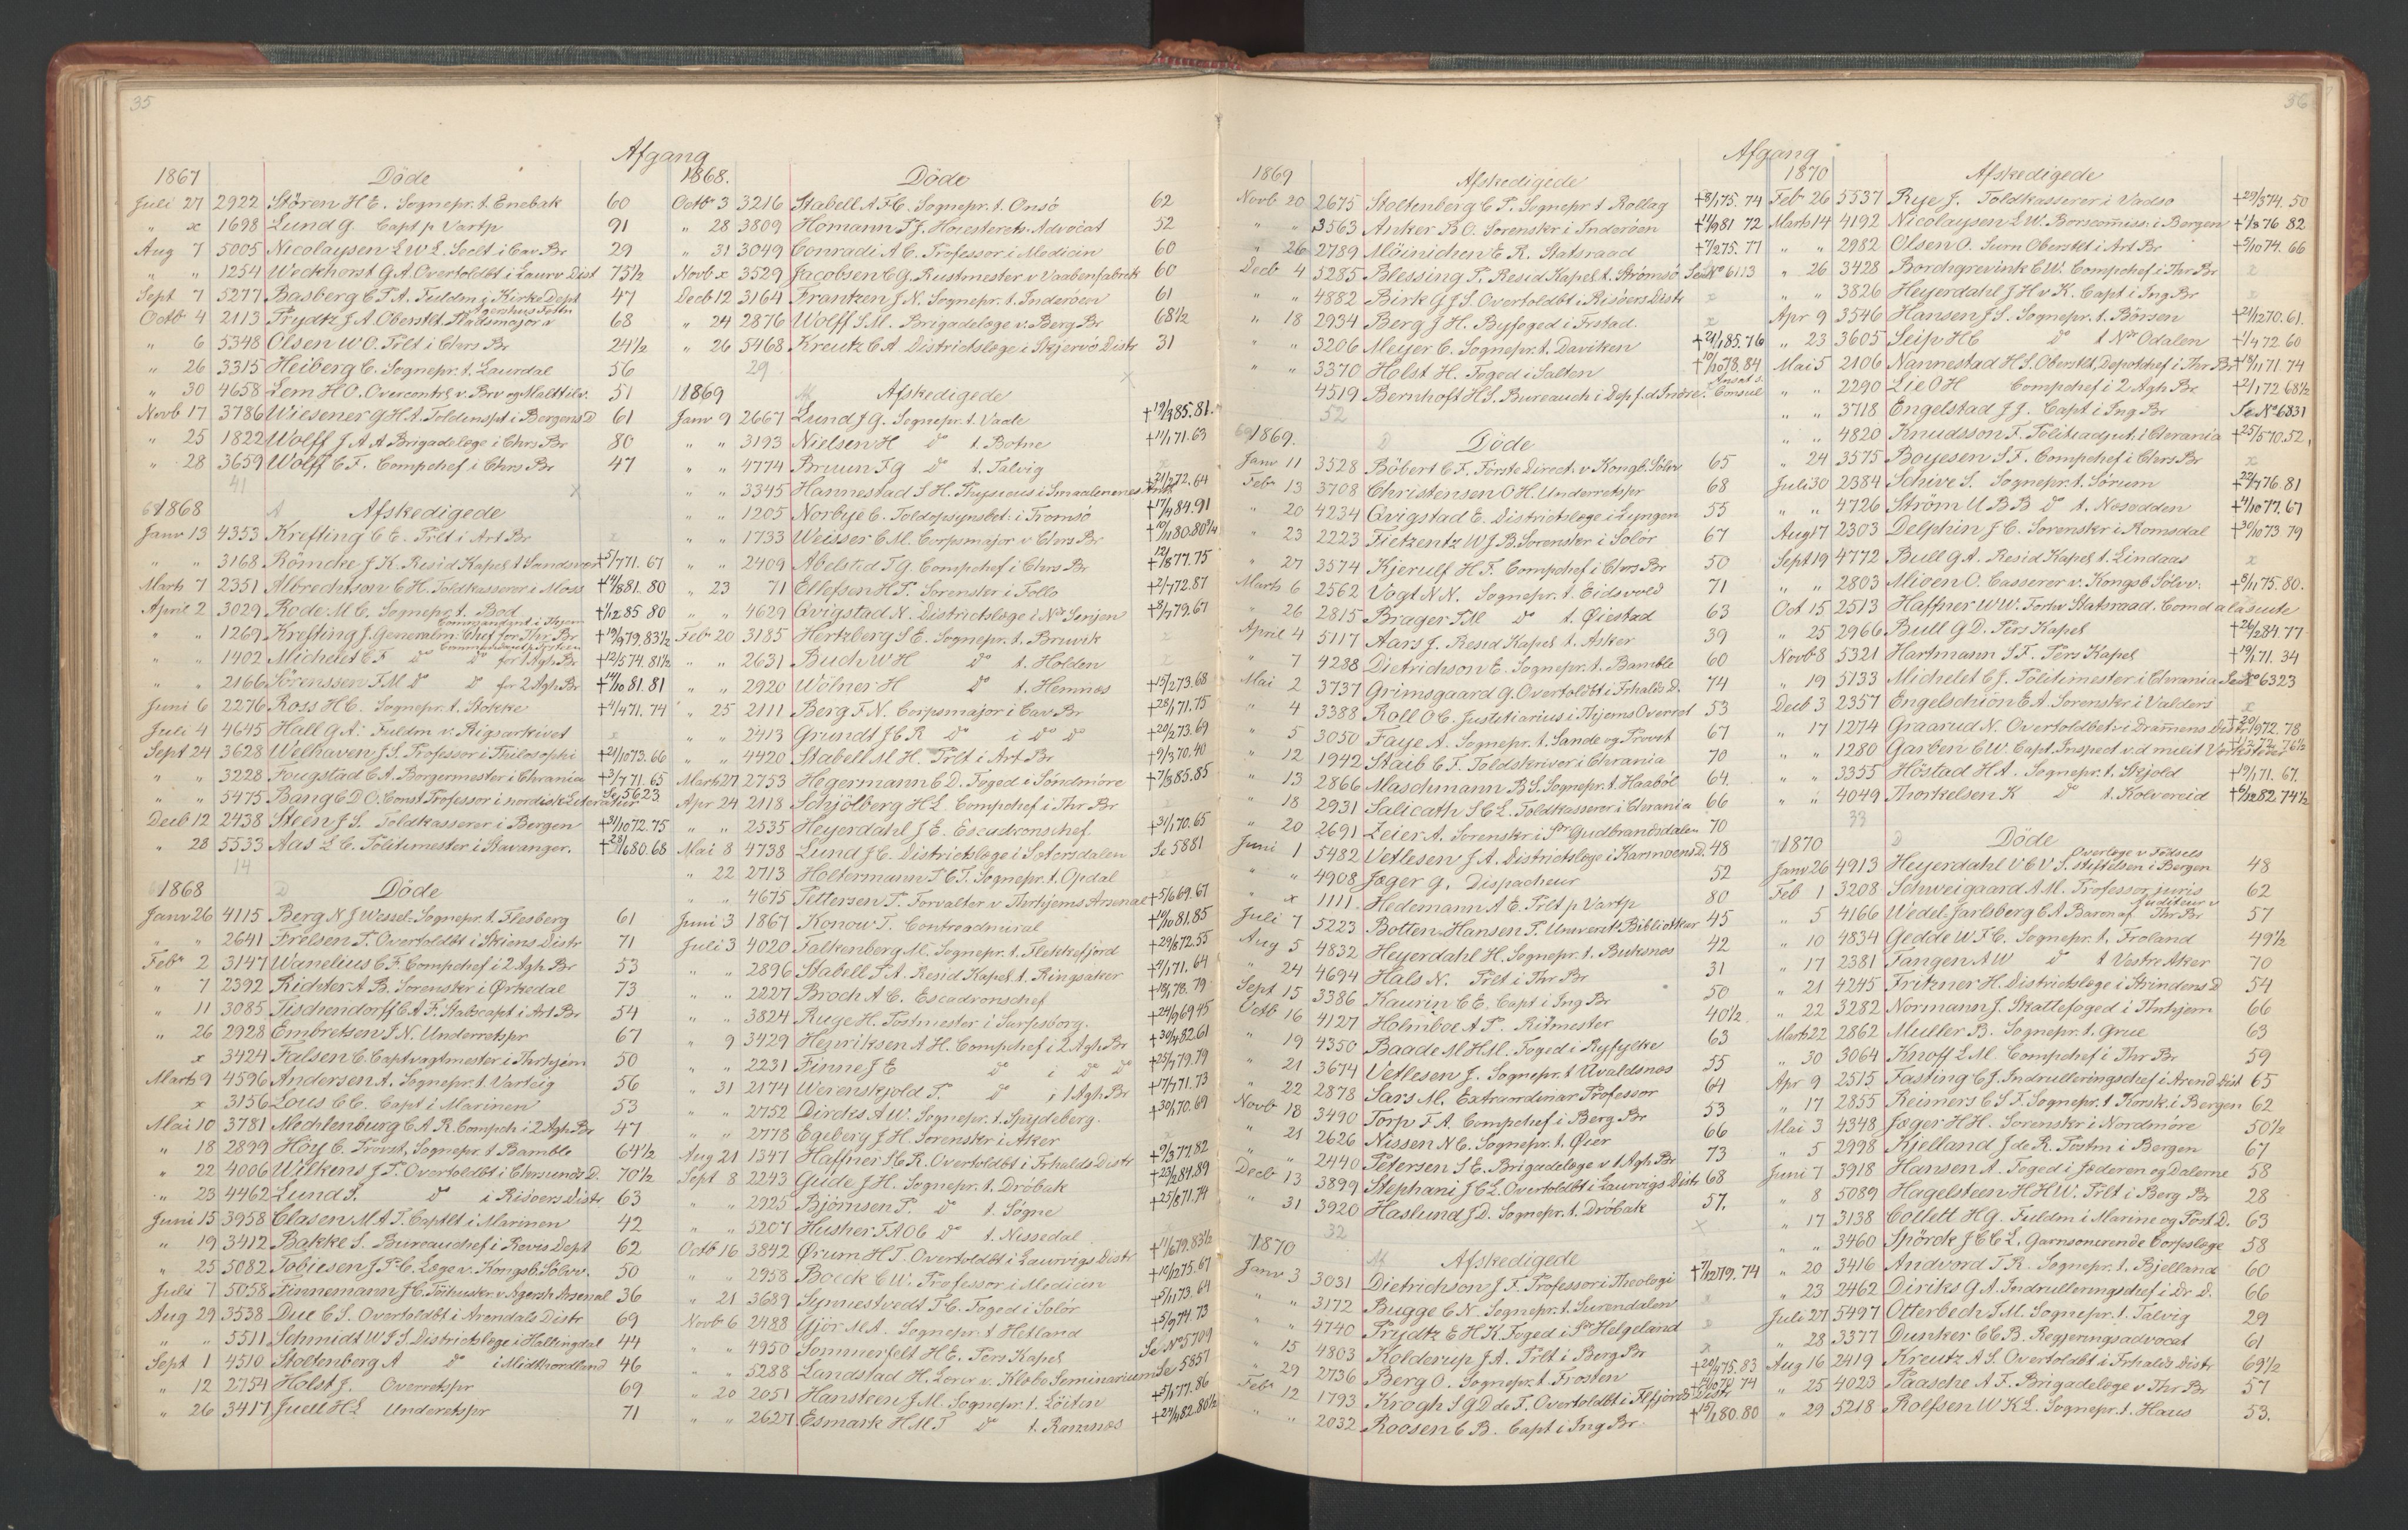 35
Afgang
1867 Döde
Juli 27 2922 Stören H E. Sognepr. t. Enebak 60
" x 1698 Lund G. Capt p Vartp 91
Aug 7 5005 Nicolaysen L W L. Seclt i Cav Br 29
" " 1254 Weckhorst G A. Overtoldbt i Laurv Dist 75½
Sept 7 5277 Basberg C P A. Fuldm i Kirke Dept 47
Octb 4 2113 Prydtz J A. Oberstlt. Pladsmajor v Agershus Fæstn 68
" 6 5348 Olsen W O. Prlt i Chrs Br 24½
" 26 3315 Heiberg C. Sognepr. t. Laurdal 56
" 30 4658 Lem H O. Overcontrl v. Brv og Malttilv. 51
Novb 17 3786 Wiesener G H A. Toldinspt i Bergens D 61
" 25 1822 Wolff J A A Brigadelæge i Chrs Br 80
" 28 3659 Wolff C F. Compchef i Chrs Br 47
41 x
1868 A Afskedigede
Janv 13 4353 Krefting C C. Prlt i Art Br x
" " 3168 Römcke J K. Resid Kapel t Sandsvær †5/7 71. 67
Marts 7 2351 Albrechtson C H. Toldkasserer i Moss †14/6 81. 80
April 2 3029 Rode M C. Sognepr. t. Bod †1/12 85 80
" " 1269 Krefting J. Generalm. Chef for Thr. Br Commandant i Thjem †19/9 79. 83½
" " 1402 Michelet C F dº dº for 1 Agh Br †12/5 74. 81½
" " 2166 Sörenssen F M dº dº for 2 Agh Br †14/10 81. 81
Juni 6 2276 Ross H C. Sognepr. t. Stokke †4/4 71. 74
Juli 4 4645 Hall G A. Fuldm v. Rigsarkivet x
Sept 24 3628 Welhaven J S. Professor i Philosophi †21/10 73. 66
" " 3228 Fougstad C A. Borgermester i Chrania †3/7 71. 65
" " 5475 Bang C D O. Const Professor i nordisk Literatur Se 5623
Decb 12 2438 Steen J S. Toldkasserer i Bergen †31/10 72. 75
" 28 5533 Aas L C. Politimester i Stavanger. †28/6 80. 68
14
1868 D Döde
Janv 26 4115 Berg N J Wessel. Sognepr. t. Flesberg 61
" " 2641 Frelsen P. Overtoldbt i Skiens Distr 71
Febr 2 3147 Wanelius C F. Compchef i 2 Agh Br 53
" 7 2392 Richter A B. Sorenskr i Ørkedal 73
" 11 3085 Tischendorff C A F. Stabscapt i Art Br 54
" 26 2928 Embretsen J N. Underretspr 67
x 3424 Falsen C. Captvagtmester i Thrhjem 50
Marts 9 4596 Andersen A. Sognepr. t. Varteig 56
x 3156 Lous C C. Capt i Marinen 53
Mai 10 3781 Mechlenburg C A R. Compch i 2 Agh Br 47
" 18 2899 Höy C. Provst, Sognepr. t Bamble 64½
" 22 4006 Wilkens J P. Overtoldbt i Chrsunds D. 70½
" 23 4462 Lund P. dº i Risøers Distr 63
Juni 15 3958 Clasen M A P. Captlt i Marinen 42
" 19 3412 Bakke S. Bureauchef i Revis Dept 62
" 25 5082 Tobiesen J P C. Læge v. Kongsb Sölvv. 50
Juli 7 5058 Finnemann J C. Töihuskr. v Agersh Arsenal 36
Aug 29 3538 Due C S. Overtoldbt i Arendals Distr 69
" " 5511 Schmidt W P S. Districtslæge i Hallingdal 44
Sept 1 4510 Stoltenberg A dº i Midthordland 46
" 12 2754 Holst J. Overretspr 69
" 26 3417 Juell H L Underetspr 71
1868. Döde
Octb 3 3216 Stabell A F C. Sognepr. t. Onsö 62
" 28 3809 Homann P J. Høiesterets Advocat 52
" 31 3049 Conradi A C. Professor i Medicin 60
Novb x 3529 Jacobsen C G. Rustmester v Vaabenfabrik 60
Decb 12 3164 Frantzen J N. Sognepr. t. Inderöen 61
" 24 2876 Wolff S M. Brigadelæge v. Berg Br 68½
" 26 5468 Kreutz C A. Districtslæge i Skjervö Distr 31
29 x
1869 Af Afskedigede
Janv 9 2667 Lund J G. Sognepr. t. Vaale †19/3 85. 81.
" " 3193 Nielsen H dº t. Botne †11/1 71. 63
" " 4774 Bruun F G dº t. Talvig x
" " 3345 Hannestad S H. Physicus i Smaalenenes Amt †21/2 72. 64
" " 1205 Norbye C. Toldopsynsbet. i Tromsö †17/4 84. 91
" " 1733 Weisser C M. Corpsmajor v Chrs Br †10/11 80 80¼
" " 2409 Abelsted T G. Compchef i Chrs Br †12/8 77. 75
" 23 71 Ellefsen H P. Sorenskr i Follo †2/7 72. 87
" " 4629 Qvigstad N. Districtslæge i Ndr Senjen †8/7 79. 67
Febr 20 3185 Hertzberg S E. Sognepr. t. Bruvik x
" " 2631 Buch W H dº t. Holden x
" " 2920 Wölner H dº t. Hemnæs †15/2 73. 68
" 25 2111 Berg F N. Corpsmajor i Cav Br †25/1 71. 75
" " 2413 Grundt J C R dº i dº dº †28/2 73. 69
" " 4420 Stabell M H. Prlt i Art Br †9/3 70. 40
Marts 27 2753 Hegermann C D. Foged i Söndmöre †7/3 85. 85
Apr 24 2118 Schjölberg H L. Compchef i Thr Br x
" " 2535 Heyerdahl J E. Escadronschef. †31/1 70. 65
Mai 8 4738 Lund J C. Districtslæge i Sætersdalen Se 5881
" 22 2713 Holtermann P C T. Sognepr. t. Opdal x
" " 4675 Pettersen P. Forvalter v Thrhjems Arsenal †5/6 69. 67
Juni 3 1867 Konow T. Contreadmiral †10/10 81. 85
Juli 3 4020 Falkenberg M. Sognepr. t. Flekkefjord †29/6 72. 55
" " 2896 Stabell P A. Resid Kapel. t. Ringsaker †9/1 71. 64
" " 2227 Broch A C. Escadronschef †18/1 78. 79
" " 3824 Ruge H. Postmester i Sarpsborg. †24/9 69 45
" 9 3429 Henriksen A H. Compchef i 2 Agh Br †30/4 82. 61
" " 2231 Finne J E dº i dº dº †25/1 79. 79
" 31 2174 Werenskjold P. dº i 1 Agh Br †17/7 71. 73
" " 2752 Diricks A W. Sognepr. t. Spydeberg. †30/1 70. 69
" " 2778 Egeberg J H. Sorenskr i Aker x
Aug 21 1347 Haffner H R. Overtoldbt i Frhalds Distr †9/3 77. 82
Sept 8 2243 Gude J H. Sognepr. t. Dröbak †23/2 84. 89
" " 2925 Björnsen P. dº t. Sögne †25/8 71. 74
" " 5207 Husher F A O C dº t. Nissedal x
Octb 16 3842 Ørum H T. Overtoldbt i Laurvigs Distr †11/6 79. 83½
" " 2958 Boeck C W. Professor i Medicin †10/12 75. 67
" 21 3689 Synnestvedt P C. Foged i Solör †5/11 73. 64
Novb 6 2488 Gjör M A. Sognepr. t. Hetland †5/9 74. 73
" " 4950 Sommerfelt H E. Pers Kapel Se Nº 5709
" " 5288 Landstad H. Lærer v. Klæbo Seminarium Se 5857
" 20 2051 Hansteen J M. Sognepr. t. Löiten †5/1 77. 86
" " 2627 Esmark H M T dº t. Ramnæs †24/4 82. 80½
36
Afgang
1869 Afskedigede
Novb 20 2675 Stoltenberg C P. Sognepr t Rollag †8/1 75. 74
" " 3563 Anker B O. Sorenskr i Inderöen †14/9 81 72
" 26 2789 Möinichen E R. Statsraad †7/2 75. 77
Decb 4 5285 Blessing P. Resid Kapel t. Strömsö Se Nº 6113
" " 4882 Birk G J S. Overtoldbt i Risöers Distr x
" 18 2934 Berg J H. Byfoged i Frstad. x
" " 3206 Meyer C. Sognepr. t. Daviken †21/1 85. 76
" " 3370 Holst H. Foged i Salten †10/10 78. 84
4519 Bernhoft H S. Bureauch i Dep f. d Indre. Ansat s. Consul
52
1869. D Döde
Janv 11 3528 Böbert C F. Förste Direct. v Kongsb. Sölvv 65
Febr 13 3708 Christensen O H. Underretspr 68
" 20 4234 Qvigstad E. Districtslæge i Lyngen 55
" 23 2223 Fietzentz W J B. Sorenskr i Solör 67
" 27 3574 Kjerulf H F. Compchef i Chrs Br 50
Marts 6 2562 Vogt N N. Sognepr. t. Eidsvold 71
" 26 2815 Brager P M dº t. Øiestad 63
April 4 5117 Aars J. Resid Kapel t. Asker 39
" 7 4238 Dietrichson E. Sognepr. t. Bamble 60
Mai 2 3737 Grimsgaard G. Overtoldbt i Frhalds D. 74
" 4 3388 Roll O C. Justitiarius i Thjems Overret 53
" 5 3050 Faye A. Sognepr. t. Sande og Provst 67
" 12 1942 Staib C F. Toldskriver i Chrania 70
" 13 2866 Maschmann B S. Sognepr. t. Haaböl 64.
" 18 2931 Salicath S C L. Toldkasserer i Chrania 66
" 20 2691 Zeier A. Sorenskr i Sdr Gudbrandsdalen 70
Juni 1 5482 Vetlesen J A. Districtslæge i Karmöens D. 48
" " 4908 Jæger G. Dispacheur 52
" x 1111 Hedemann A E. Prlt p Vartp 80
Juli 7 5223 Botten-Hansen P. Universit. Bibliothkar 45
Aug 5 4832 Heyerdahl H. Sognepr. t. Buksnæs 42
" 24 4694 Hals N. Prlt i Thr Br 31
Sept 15 3386 Kaurin C E. Capt i Ing Br 50
Octb 16 4127 Holmboe A P. Ritmester 40½
" 19 4350 Baade M H M. Foged i Ryfylke 63
" 21 3674 Vetlesen J. Sognepr. t Avaldsnæs 55
" 22 2878 Sars M. Extraordinær Professor 64
Novb 18 3490 Torp F A. Compchef i Berg Br 53
" 21 2626 Nissen N C. Sognepr. t. Öier 66
" " 2440 Petersen S E. Brigadelæge v. 1 Agh Br 73
Decb 13 3899 Stephani J E L. Overtoldbt i Laurvigs Distr 68
" 31 3920 Haslund J D. Sognepr. t. Dröbak 57.
32 x
1870 Af Afskedigede
Janv 3 3031 Dietrichson J F. Professor i Theologi †7/12 79. 74
" " 3172 Bugge C N. Sognepr. t. Surendalen x
" " 4740 Prydtz E H K. Foged i Sdr Helgeland x
" 15 4803 Kolderup J A. Prlt i Berg Br x
" 29 2736 Berg O. Sognepr. t. Frosten †24/4 75. 83
Febr 12 1793 Krogh S G D de T. Overtoldbt i Flfjords Distr †14/10 70 74
" " 2032 Roosen C B. Capt i Ing Br †15/1 80. 80
1870 Afskedigede
Feb 26 5537 Rye J. Toldkasserer i Vadsö †29/3 74. 50
Marts 14 4192 Nicolaysen L W. Borscommiss. i Bergen †1/3 76 82
" " 2982 Olsen O. Surn Oberstlt i Art Br †5/10 74. 66
" 26 3428 Borchgrevink C W. Compchef i Thr Br x
" " 3826 Heyerdahl J H v K. Capt i Ing Br x
Apr 9 3546 Hansen J S. Sognepr. t. Börsen †21/12 70. 61.
" 23 3605 Seip H C dº t Ndr Odalen †1/4 72 60
Mai 5 2106 Nannestad H S. Oberstlt, Depotchef i Thr Br †18/11 71 74
" " 2290 Lie O H Compchef i 2 Agh Br †21/1 72 68½
" " 3718 Engelstad J J. Capt i Ing Br Se Nº 6831
" " 4820 Knudsson F. Politiadjut. i Chrania †25/5 70. 52.
" 24 3575 Boyesen S F. Compchef i Chrs Br x
Juli 30 2384 Schive S. Sognepr. t. Sörum †22/4 76. 81
" " 4726 Ström U B B dº t. Nesodden †4/10 77. 67
Aug 17 2303 Delphin J C. Sorenskr i Romsdal †30/10 73 79
Sept 19 4772 Bull G A. Resid Kapel t. Lindaas x
" " 2803 Mioen O. Casserer v. Kongsb Sölvv: †9/11 75. 80.
Oct 15 2513 Haffner W W. Forhv Statsraad. Comd a la suite
" 25 2966 Bull G D. Pers Kapel †26/2 84. 77
Novb 8 5321 Hartmann S F. Pers Kapel †19/1 71. 34
" 19 5133 Michelet C J. Politimester i Chrania Se Nº 6323
Decb 3 2357 Engelschiön E A. Sorenskr i Valders x
" 17 1274 Graarud N. Overtoldbet. i Drammens Distr †20/1 72. 78
" " 1280 Garben C W. Capt. Inspect v. d milit Værksteder
" " 3355 Höstad H A. Sognepr. t. Skjold †19/1 71. 67.
" " 4049 Thorkelsen K dº t. Kolvereid †6/12 82 74½
33
1870 D Döde
Janv 26 4913 Heyerdahl V C V S. Overlæge v Födsels stiftelsen i Bergen 48
Feb 1 3208 Schweigaard A M. Professor juris 62
" 5 4166 Wedel-Jarlsberg C A Baron af. Auditeur v Thr Br 57
" 10 4834 Gedde W F C. Sognepr. t. Froland 49½
" 17 2381 Fangen A W dº t Vestre Aker 70
" 21 4245 Fritzner H. Districtslæge i Strindens D 54
" 22 3282 Normann J. Skattefoged i Thrhjem 66
Marts 22 2862 Muller B. Sognepr. t. Grue 63
" 30 3064 Knoff L M. Compchef i Thr Br 59
Apr 9 2515 Fasting C J. Indrulleringschef i Arend Dist 65
" 17 2855 Reimers C S F. Sognepr. t. Korsk. i Bergen 62
Mai 3 4348 Jæger H H. Sorenskr i Nordmöre 50½
" 5 2998 Kjelland J de R. Postm i Bergen 67
Juni 7 3918 Hansen A. Foged i Jæderen og Dalerne 58
" 8 5089 Hagelsteen H H W. Prlt i Berg Br 28
" 17 3138 Collett H G. Fuldm i Marine og Post D. 63
" " 3460 Spörck J C C L. Garnsonerende Corpslæge 58
" 20 3416 Andvord T R. Sognepr. t. Bjelland 60
" 23 2462 Diriks G A. Indrulleringschef i Dr D. 66
Juli 27 5497 Otterbech S M. Sognepr. t. Talvig 29
" 28 3377 Dunker C C B. Regjeringsadvocat 61
Aug 16 2419 Kreutz A S. Overtoldbt i Frhalds Distr 69½
" 25 4023 Paasche A F. Brigadelæge v Thr Br 57
" 29 5218 Rolfsen W K L. Sognepr. t. Haus 53.